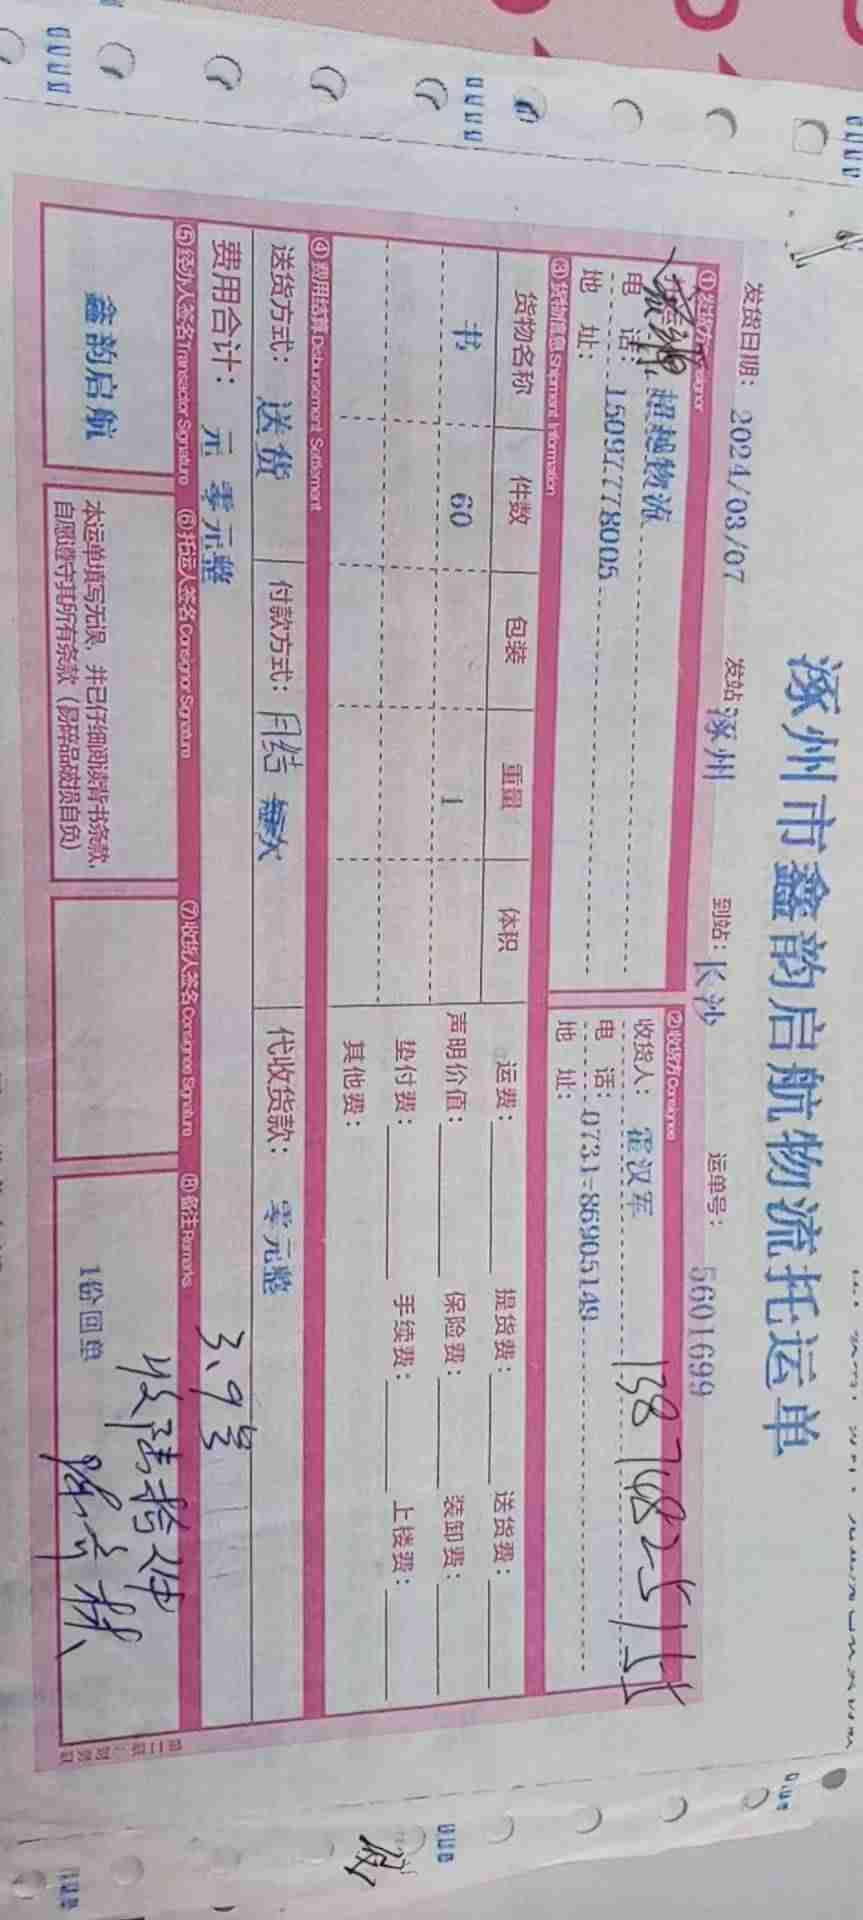 涿州市鑫韵启航物流托运单
发货日期： 2024/03/07 发站：涿州 到站：长沙 运单号： 5601699
①发货方Consignor ②收货方Consignee
超越物流 收货人： 霍汉军 13874825155
电 话： 15097778005 电 话： 0731-86905149
地 址： 地 址：
③货物信息 Shipment Information
货物名称 件数 包装 重量 体积 运费： 提货费： 送货费：
书 60 1 声明价值： 保险费： 装卸费：
垫付费： 手续费： 上楼费：
其他费：
④费用结算 Debursement Settlement
送货方式： 送货 付款方式： 月结 代收货款： 零元整
费用合计： 元 零元整
3.9号
⑤经办人签名 Transactor Signature ⑥托运人签名 Consignor Signature ⑦收货人签名 Consignee Signature ⑧备注 Remarks
鑫韵启航
本运单填写无误，并已仔细阅读背书条款，
自愿遵守其所有条款（易碎品破损自负）
收陆拾件
1份回单
第二联：财务联